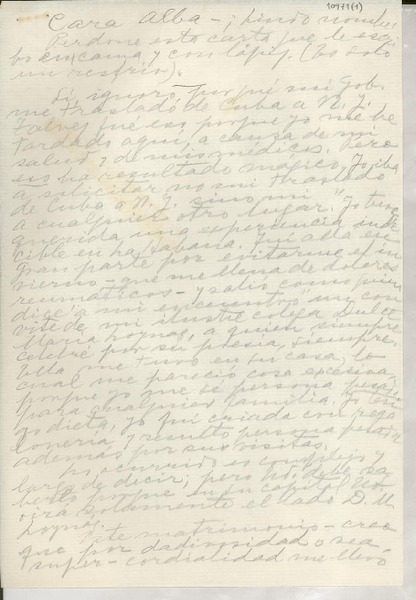 10971(1)
Cara Alba - ¡lindo nombre!
Perdone esta carta que le escri-
bo en cama y con lápiz. (Es solo
un resfrío).
Sí, ignoro por qué mi Gob.
me trasladó de Cuba a N. Y.
Tal vez fue eso porque yo me he
tardado aquí, a causa de mi
salud y de mis médicos. Pero
eso ha resultado mágico. Yo iba
a solicitar no mi traslado
de Cuba a N. Y. sino mi
a cualquier otro lugar. Yo tuve,
querida, una experiencia inde-
cible en La Habana. Fui allá en
gran parte por evitarme el in-
vierno - que me llena de dolores
reumáticos - y salió como quien
dice a mi encuentro un con-
vite de mi ilustre colega Dulce
María Loynaz, a quien siempre
celebré por su poesía, siempre.
Ella me tuvo en su casa, lo
cual me pareció cosa excesiva,
porque yo que sé persona pesada
para cualquier familia. Yo
yo dieta, yo fui criada con rega
lonería y resulto persona pesada
además por sus visitas.
Lo ocurrido es complejo y
largo de decir; pero Ud. debe sa-
berlo porque en su capital
oirá solamente el lado D. M.
Loynaz.
Este matrimonio - creo
que por dadivosidad o sea
super-cordialidad me llevó